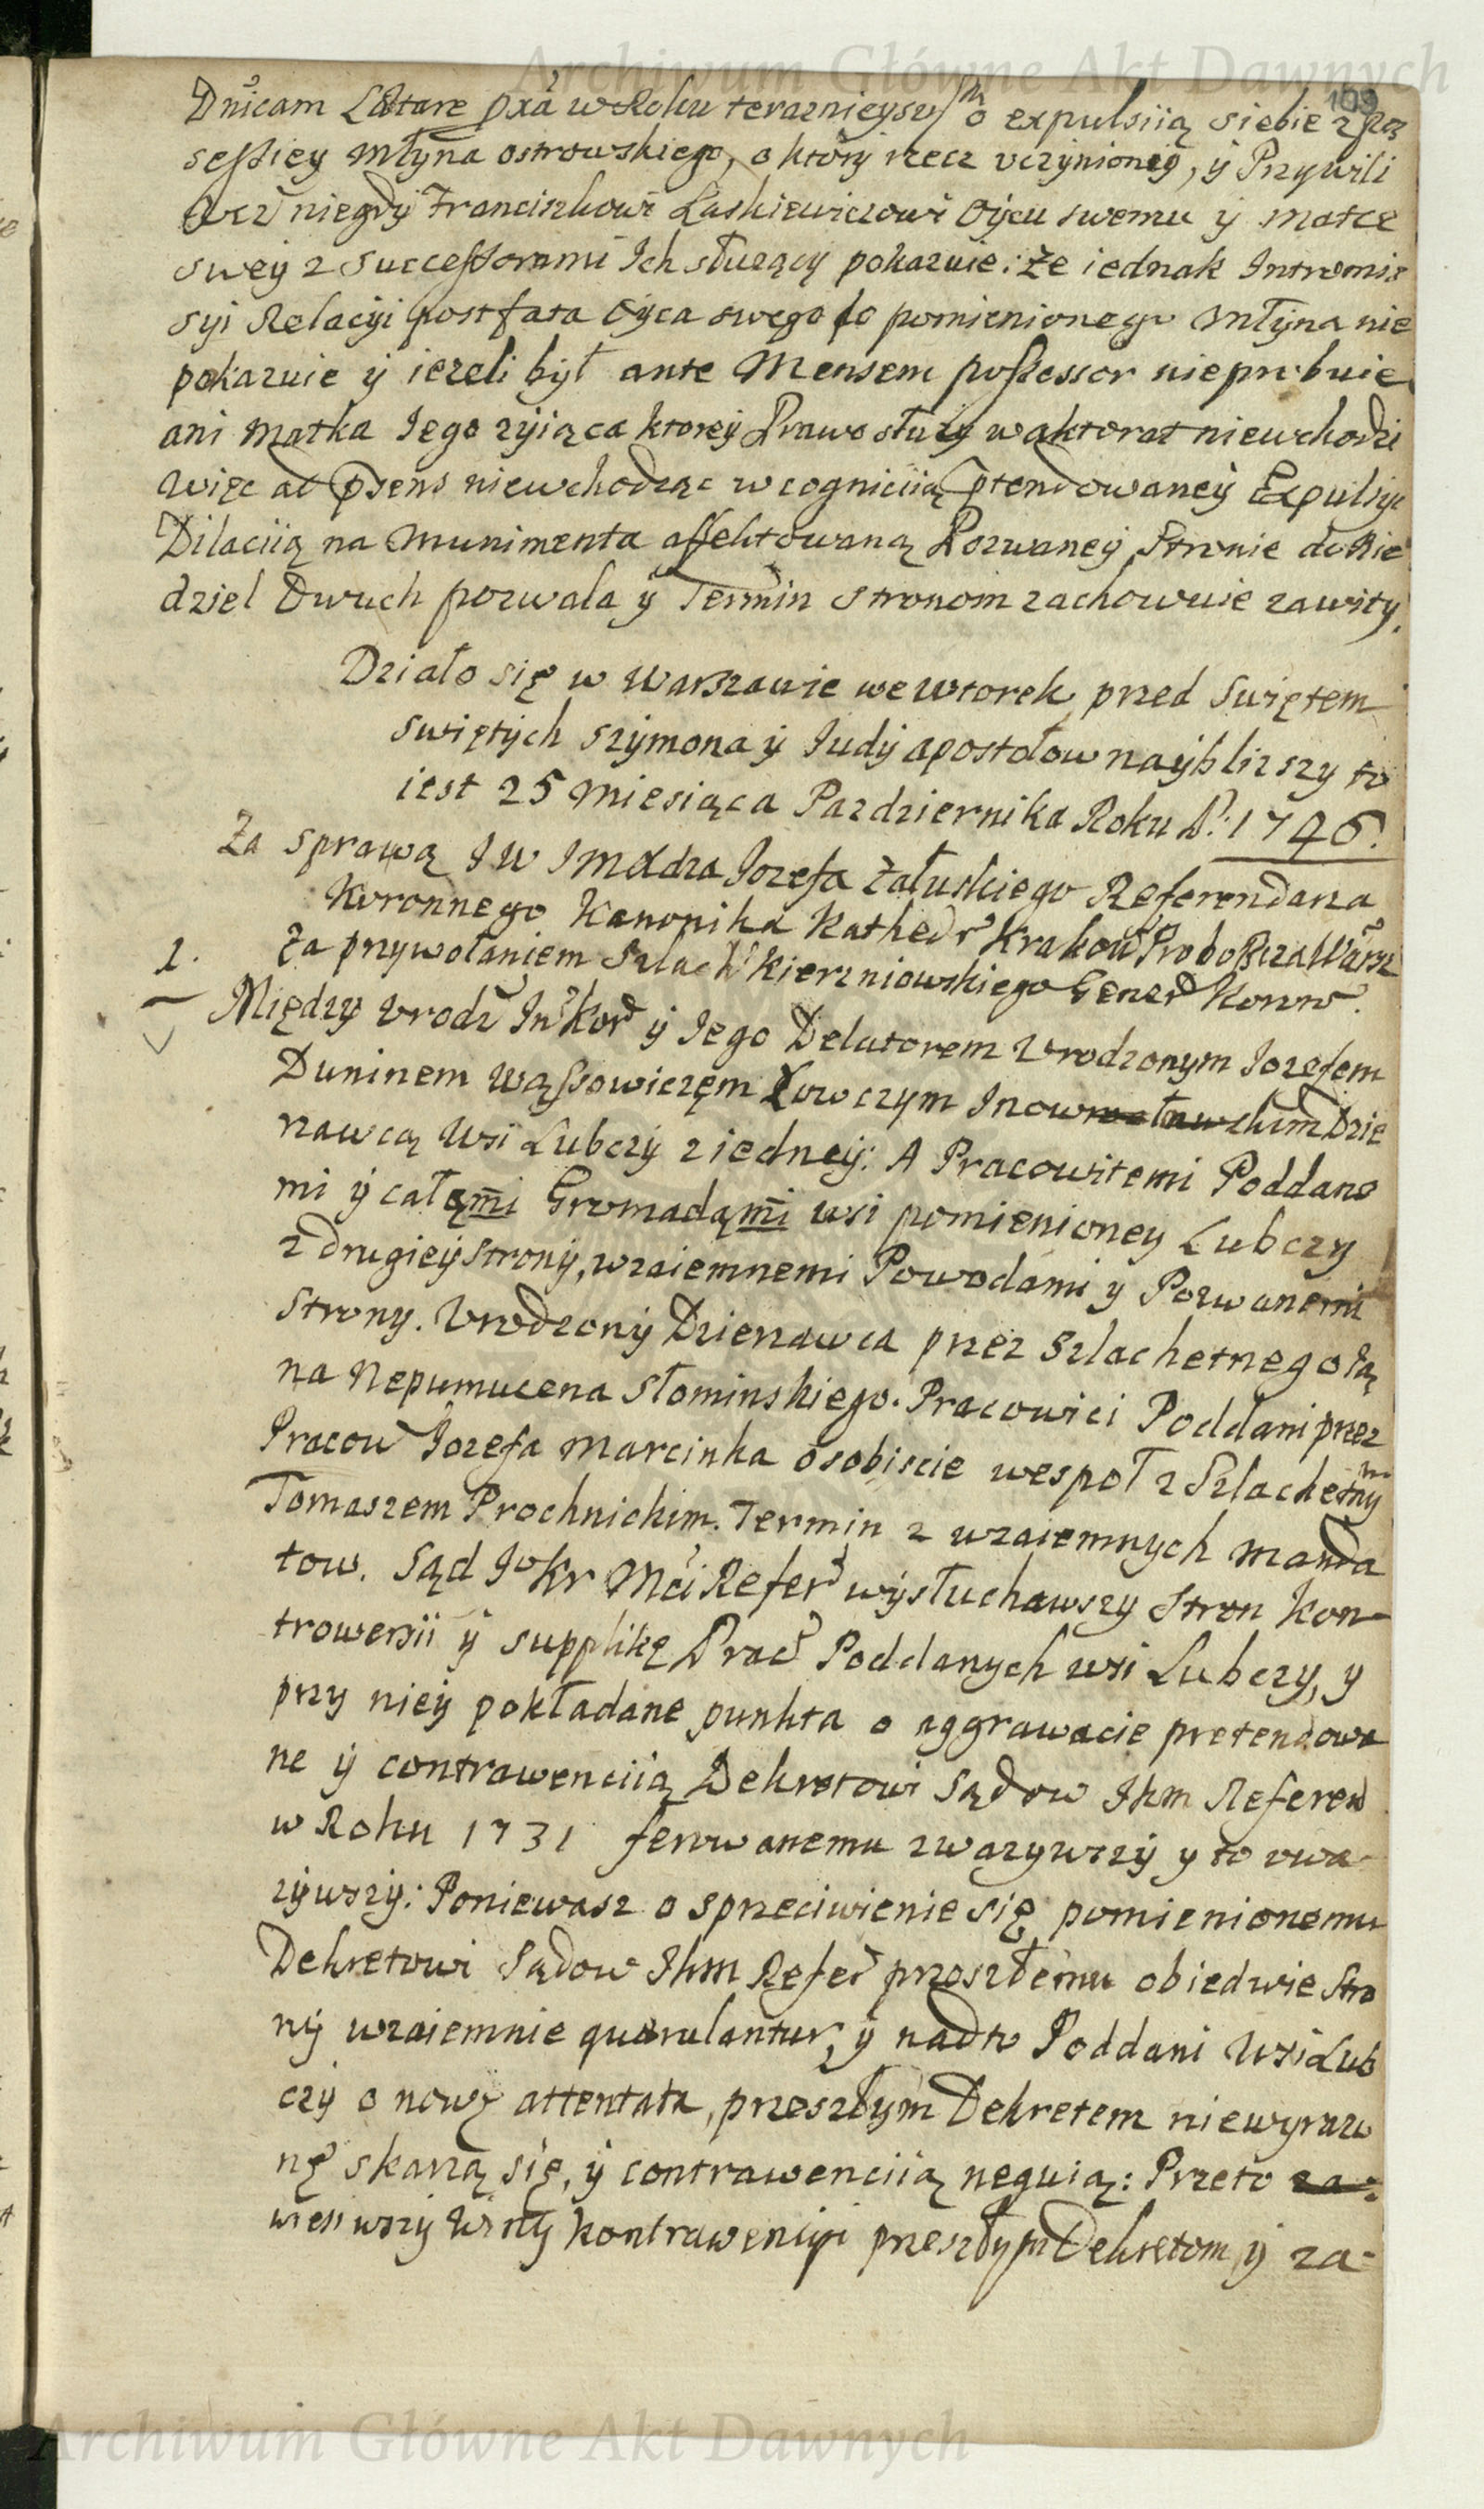 Archiwum Główne Akt Dawnych
109
Dnicam Lætare pxa w Roku teraznieyszym o expulsiią siebie z Pos
sessiey Młyna ostrowskiego, o ktory rzecz vczynioney, y Przywili
niegdy Franciszkowi Laskiewiczowi Oycu swemu y matce
swey z Successorami Ich słuzący pokazuie: Ze iednak Intromis
syi Relacyi post fata Oyca swego do pomienionego Młyna nie
pokazuie y iezeli był ante Mensem possessor nieprobuie
ani Matka Iego zyiąca ktorey Prawo słuzy w aktorat niewchodzi
więc ad psens niewchodząc w cogniciią ptendowaney Expulsyi
Dilaciią na Munimenta affektowaną Pozwaney Stronie do Nie
dziel Dwuch pozwala y Termin stronom zachowuie zawity.
Działo się w Warszawie we Wtorek przed Swiętem
swiętych Szymona y Iudy apostołow nayblizszy to
iest 25 Miesiąca Pazdziernika Roku P: 1746.
Za sprawą I W Imci Xdza Iozefa Załuskiego Referendarza
Koronnego Kanonika Kathedr Krakow Proboszcza Warsz
Za przywołaniem Szlach Kierzniowskiego Gener Koron.
1.
Między Vrodz In Kor y Iego Delatorem Vrodzonym Iozefem
Duninem Wąssowiczęm Łowczym Inowrocławskim Dzie
rzawcą Wsi Lubczy z iedney: A Pracowitemi Poddane
mi y całąmi Gromadąmi wsi pomienioney Lubczy
z drugiey strony, wzaiemnemi Powodami y Pozwanemi
Strony. Vrodzony Dzierzawca przez Szlachetnego Ia
na Nepumucena Słominskiego. Pracowici Poddani przez
Pracow Iozefa Marcinka osobiscie wespoł z Szlachetnym
Tomaszem Prochnickim. Termin z wzaiemnych manda
tow. Sąd Io Kr Mci Refer wysłuchawszy Stron Kon
trowersii y supplikę Prac Poddanych wsi Lubczy, y
przy niey pokładane punkta o aggrawacie pretendowa
ne y contrawenciią Dekretowi Sądow Ikm Referen
w Roku 1731 ferowanemu zwazywszy y to vwa
zywszy: Poniewasz o sprzeciwienie się pomienionemu
Dekretowi Sądow Ikm Refer przeszłemu obiedwie Stro
ny wzaiemnie querulantur, y nadto Poddani Wsi Lub
czy o nowę attentata, przeszłym Dekretem niewyrazo
nę skarzą się, y contrawenciią neguią: Przeto za-
wiesiwszy Winy kontrawencyi przeszłym Dekretom y za-
Archiwum Główne Akt Dawnych